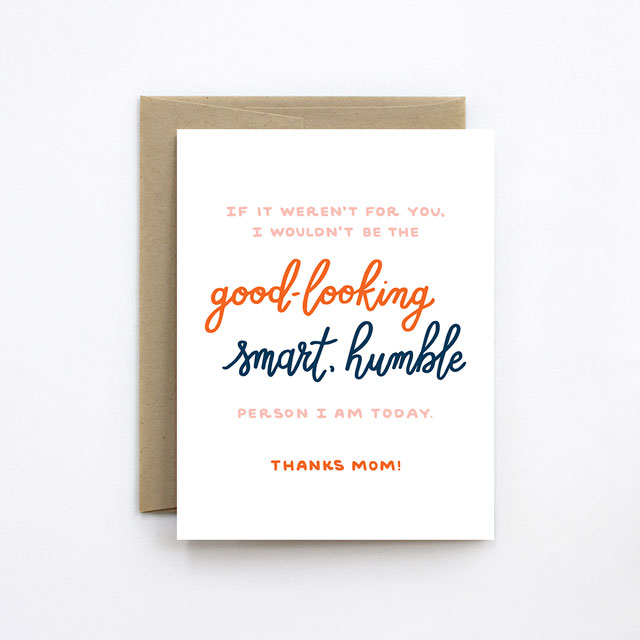 IF IT WEREN'T FOR YOU,
I WOULDN'T BE THE
good-looking
smart, humble
PERSON I AM TODAY.
THANKS MOM!